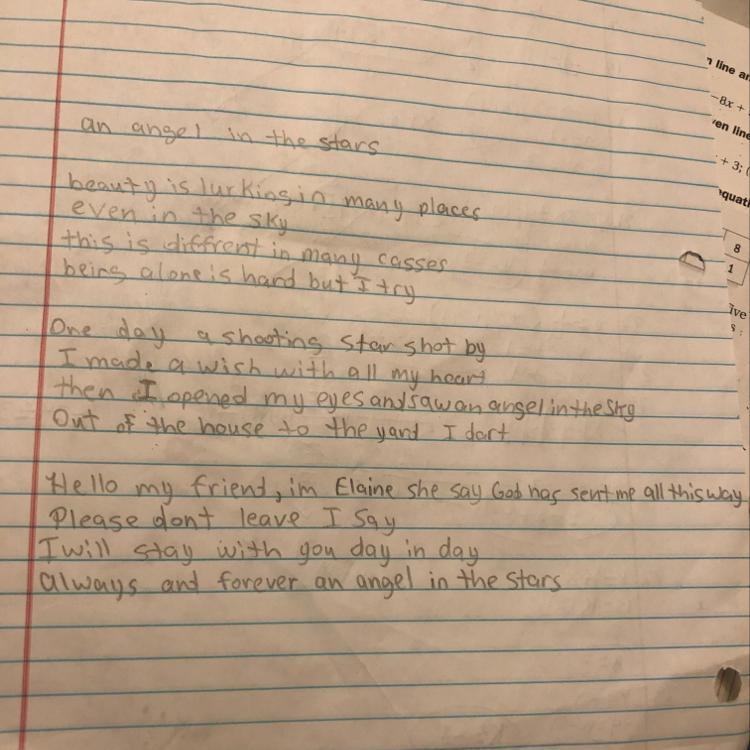 an angel in the stars
beauty is lurking in many places
even in the sky
this is diffrent in many casses
being alone is hard but I try
One day a shooting star shot by
I made a wish with all my heart
then I opened my eyes and saw an angel in the sky
Out of the house to the yard I dart
Hello my friend, im Elaine she say God has sent me all this way
Please dont leave I say
I will stay with you day in day
always and forever an angel in the stars
line an
-8x +
en line
+ 3; (
equati
8
1